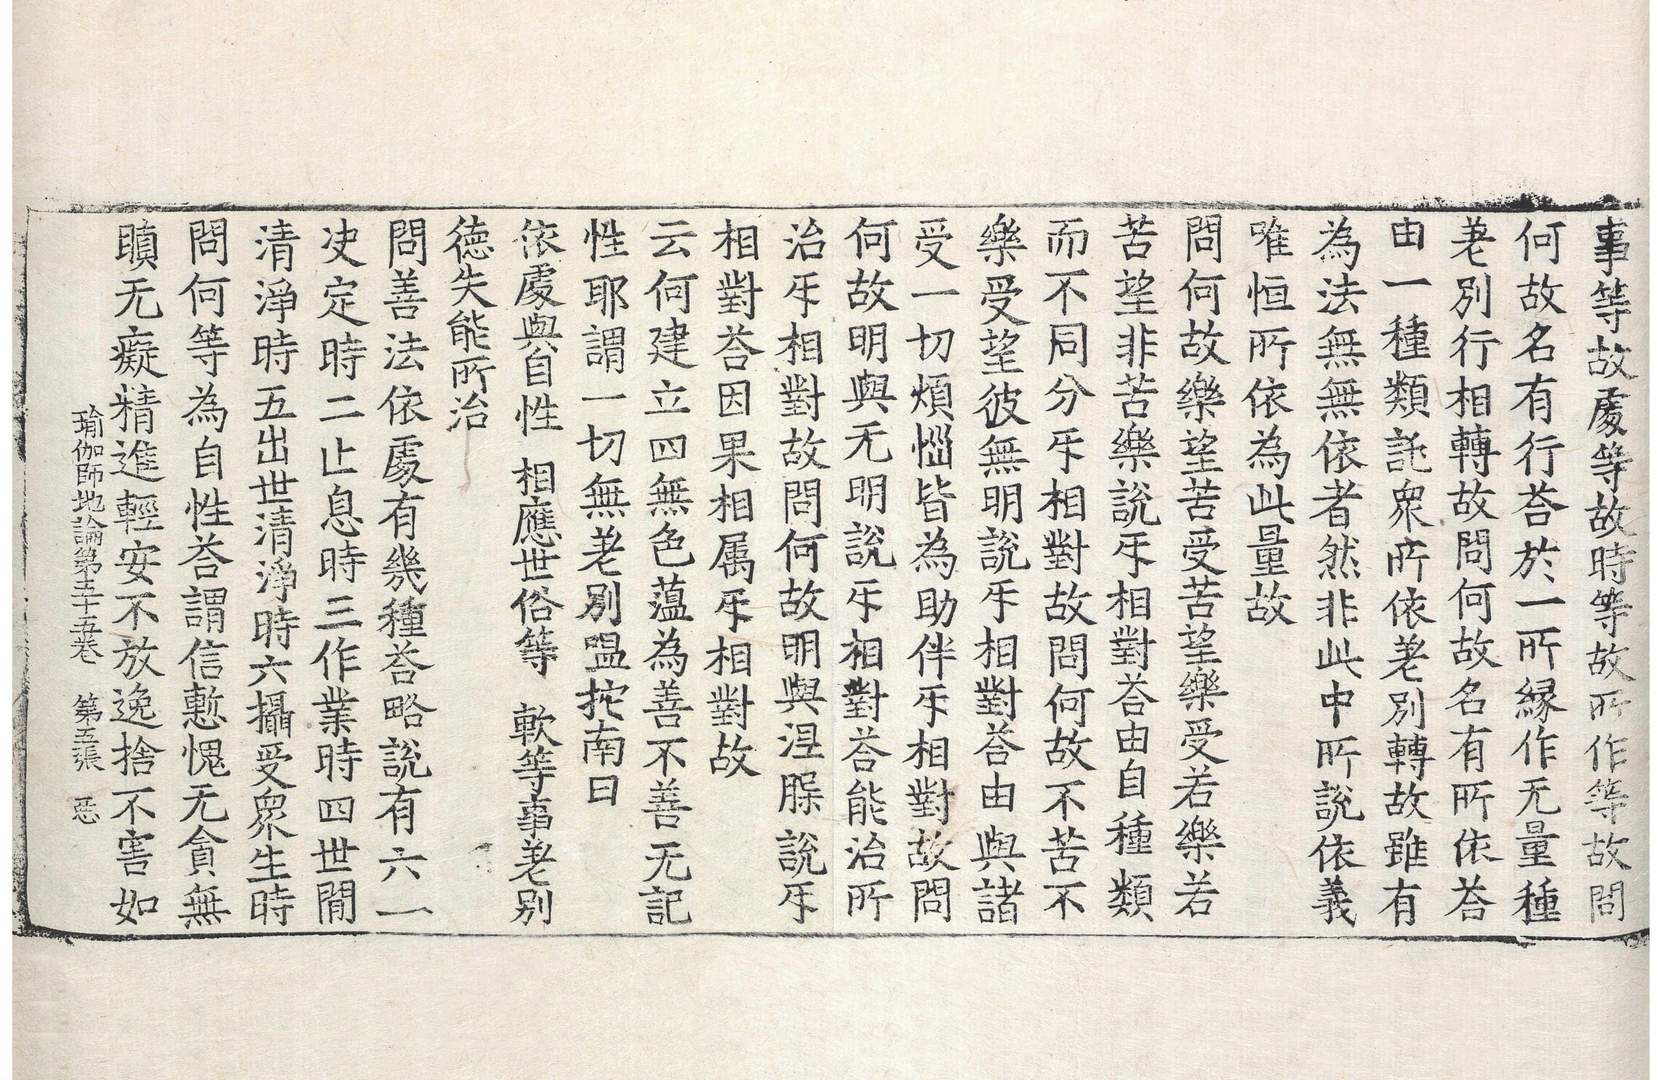 事等故處等故時等故所作等故問
何故名有行荅於一所緣作无量種
差別行相轉故問何故名有所依荅
由一種類託衆所依差別轉故雖有
為法無無依者然非此中所說依義
唯恒所依為此量故
問何故樂望苦受苦望樂受若樂若
苦望非苦樂說互相對荅由自種類
而不同分互相對故問何故不苦不
樂受望彼無明說互相對荅由與諸
受一切煩惱皆為助伴互相對故問
何故明與无明說互相對荅能治所
治互相對故問何故明與涅槃說互
相對荅因果相属互相對故
云何建立四無色蘊為善不善无記
性耶謂一切無差別嗢拕南曰
依處與自性 相應世俗等 軟等事差別
德失能所治
問善法依處有幾種荅略說有六一
决定時二止息時三作業時四世間
清淨時五出世清淨時六攝受衆生時
問何等為自性荅謂信慙愧无貪無
瞋无癡精進輕安不放逸捨不害如
瑜伽師地論第五十五卷 第五張 惡